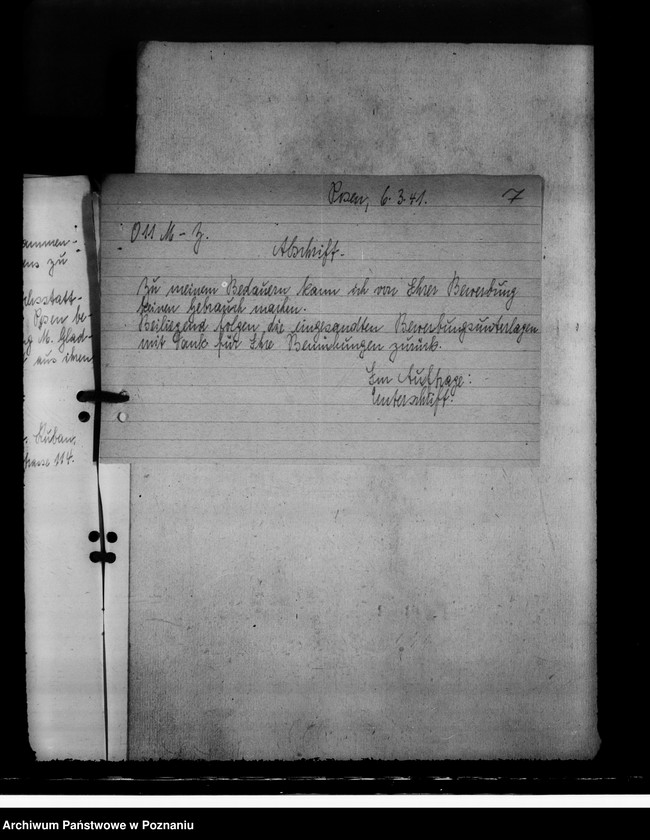 Posen, 6.3.41. 7
O 11 M - Z.
Abschrift.
Zu meinem Bedauern kann ich von Ihrer Bewerbung
keinen Gebrauch machen.
Beiliegend folgen die eingesandten Bewerbungsunterlagen
mit Dank für Ihre Bemühungen zurück.
Im Auftrage:
Unterschrift.
ammen-
ens zu
Posen be-
M. Glad-
aus ihren
Kuban,
114.
Archiwum Państwowe w Poznaniu